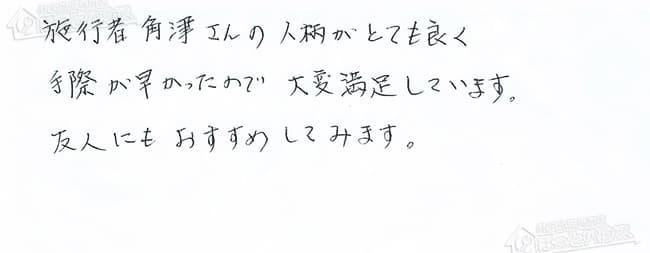 施行者 角澤さんの人柄がとても良く
手際が早かったので 大変満足しています。
友人にもおすすめしてみます。